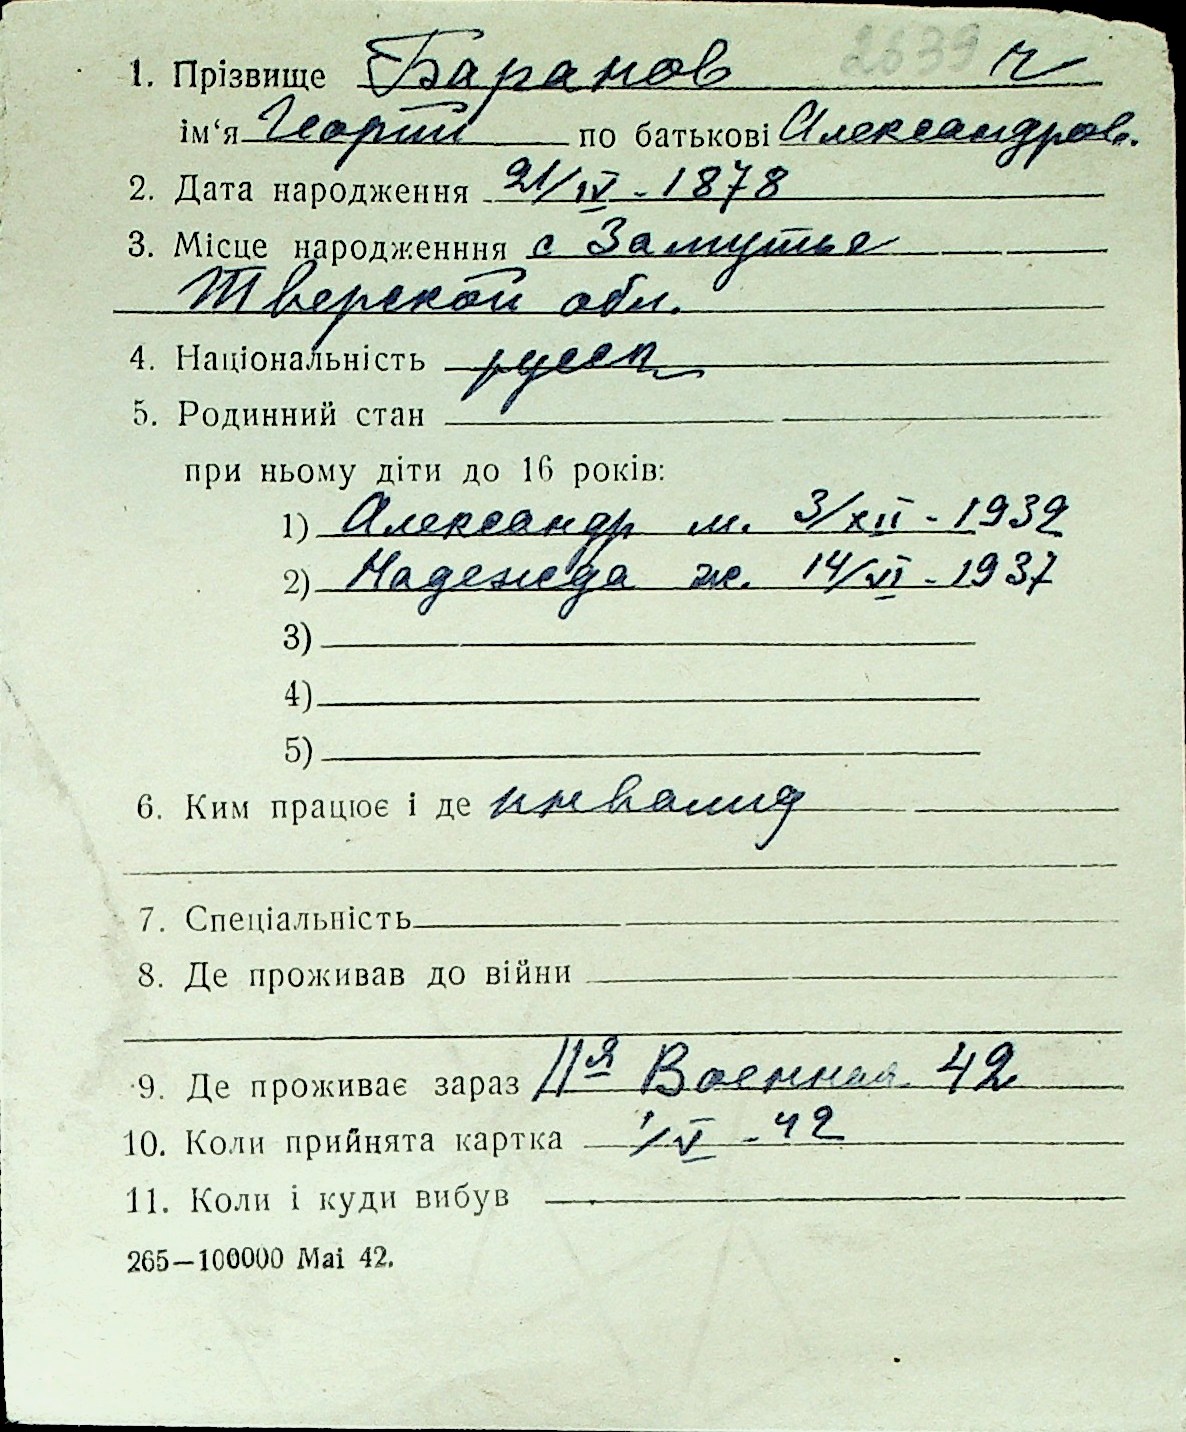 2639
1. Прізвище Баранов ч
ім‘я Георгий по батькові Александров.
2. Дата народження 21/IV - 1878
3. Місце народженння с Замутье
Тверской обл.
4. Національність русск
5. Родинний стан
при ньому діти до 16 років:
1) Александр м. 3/XII - 1932
2) Надежда ж. 14/VI - 1937
3)
4)
5)
6. Ким працює і де инвалид
7. Спеціальність
8. Де проживав до війни
9. Де проживає зараз IIя Военная 42
10. Коли прийнята картка 1/V - 42
11. Коли і куди вибув
265—100000 Mai 42.